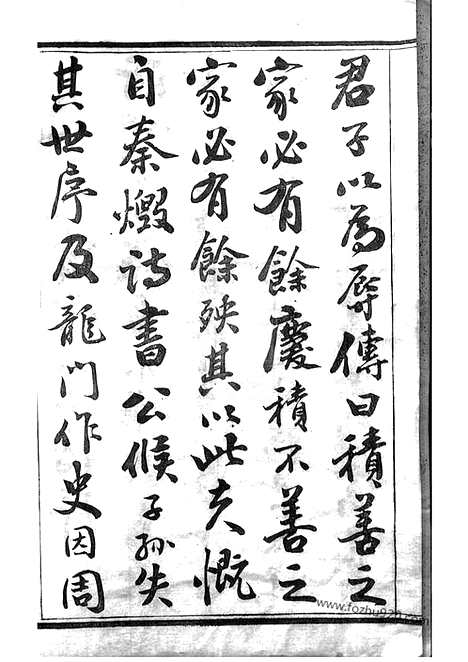 君子以為辱傳曰積善之
家必有餘慶積不善之
家必有餘殃其以此夫慨
自秦燬詩書公侯子孫失
其世序及龍門作史因周
www.fozhu920.com